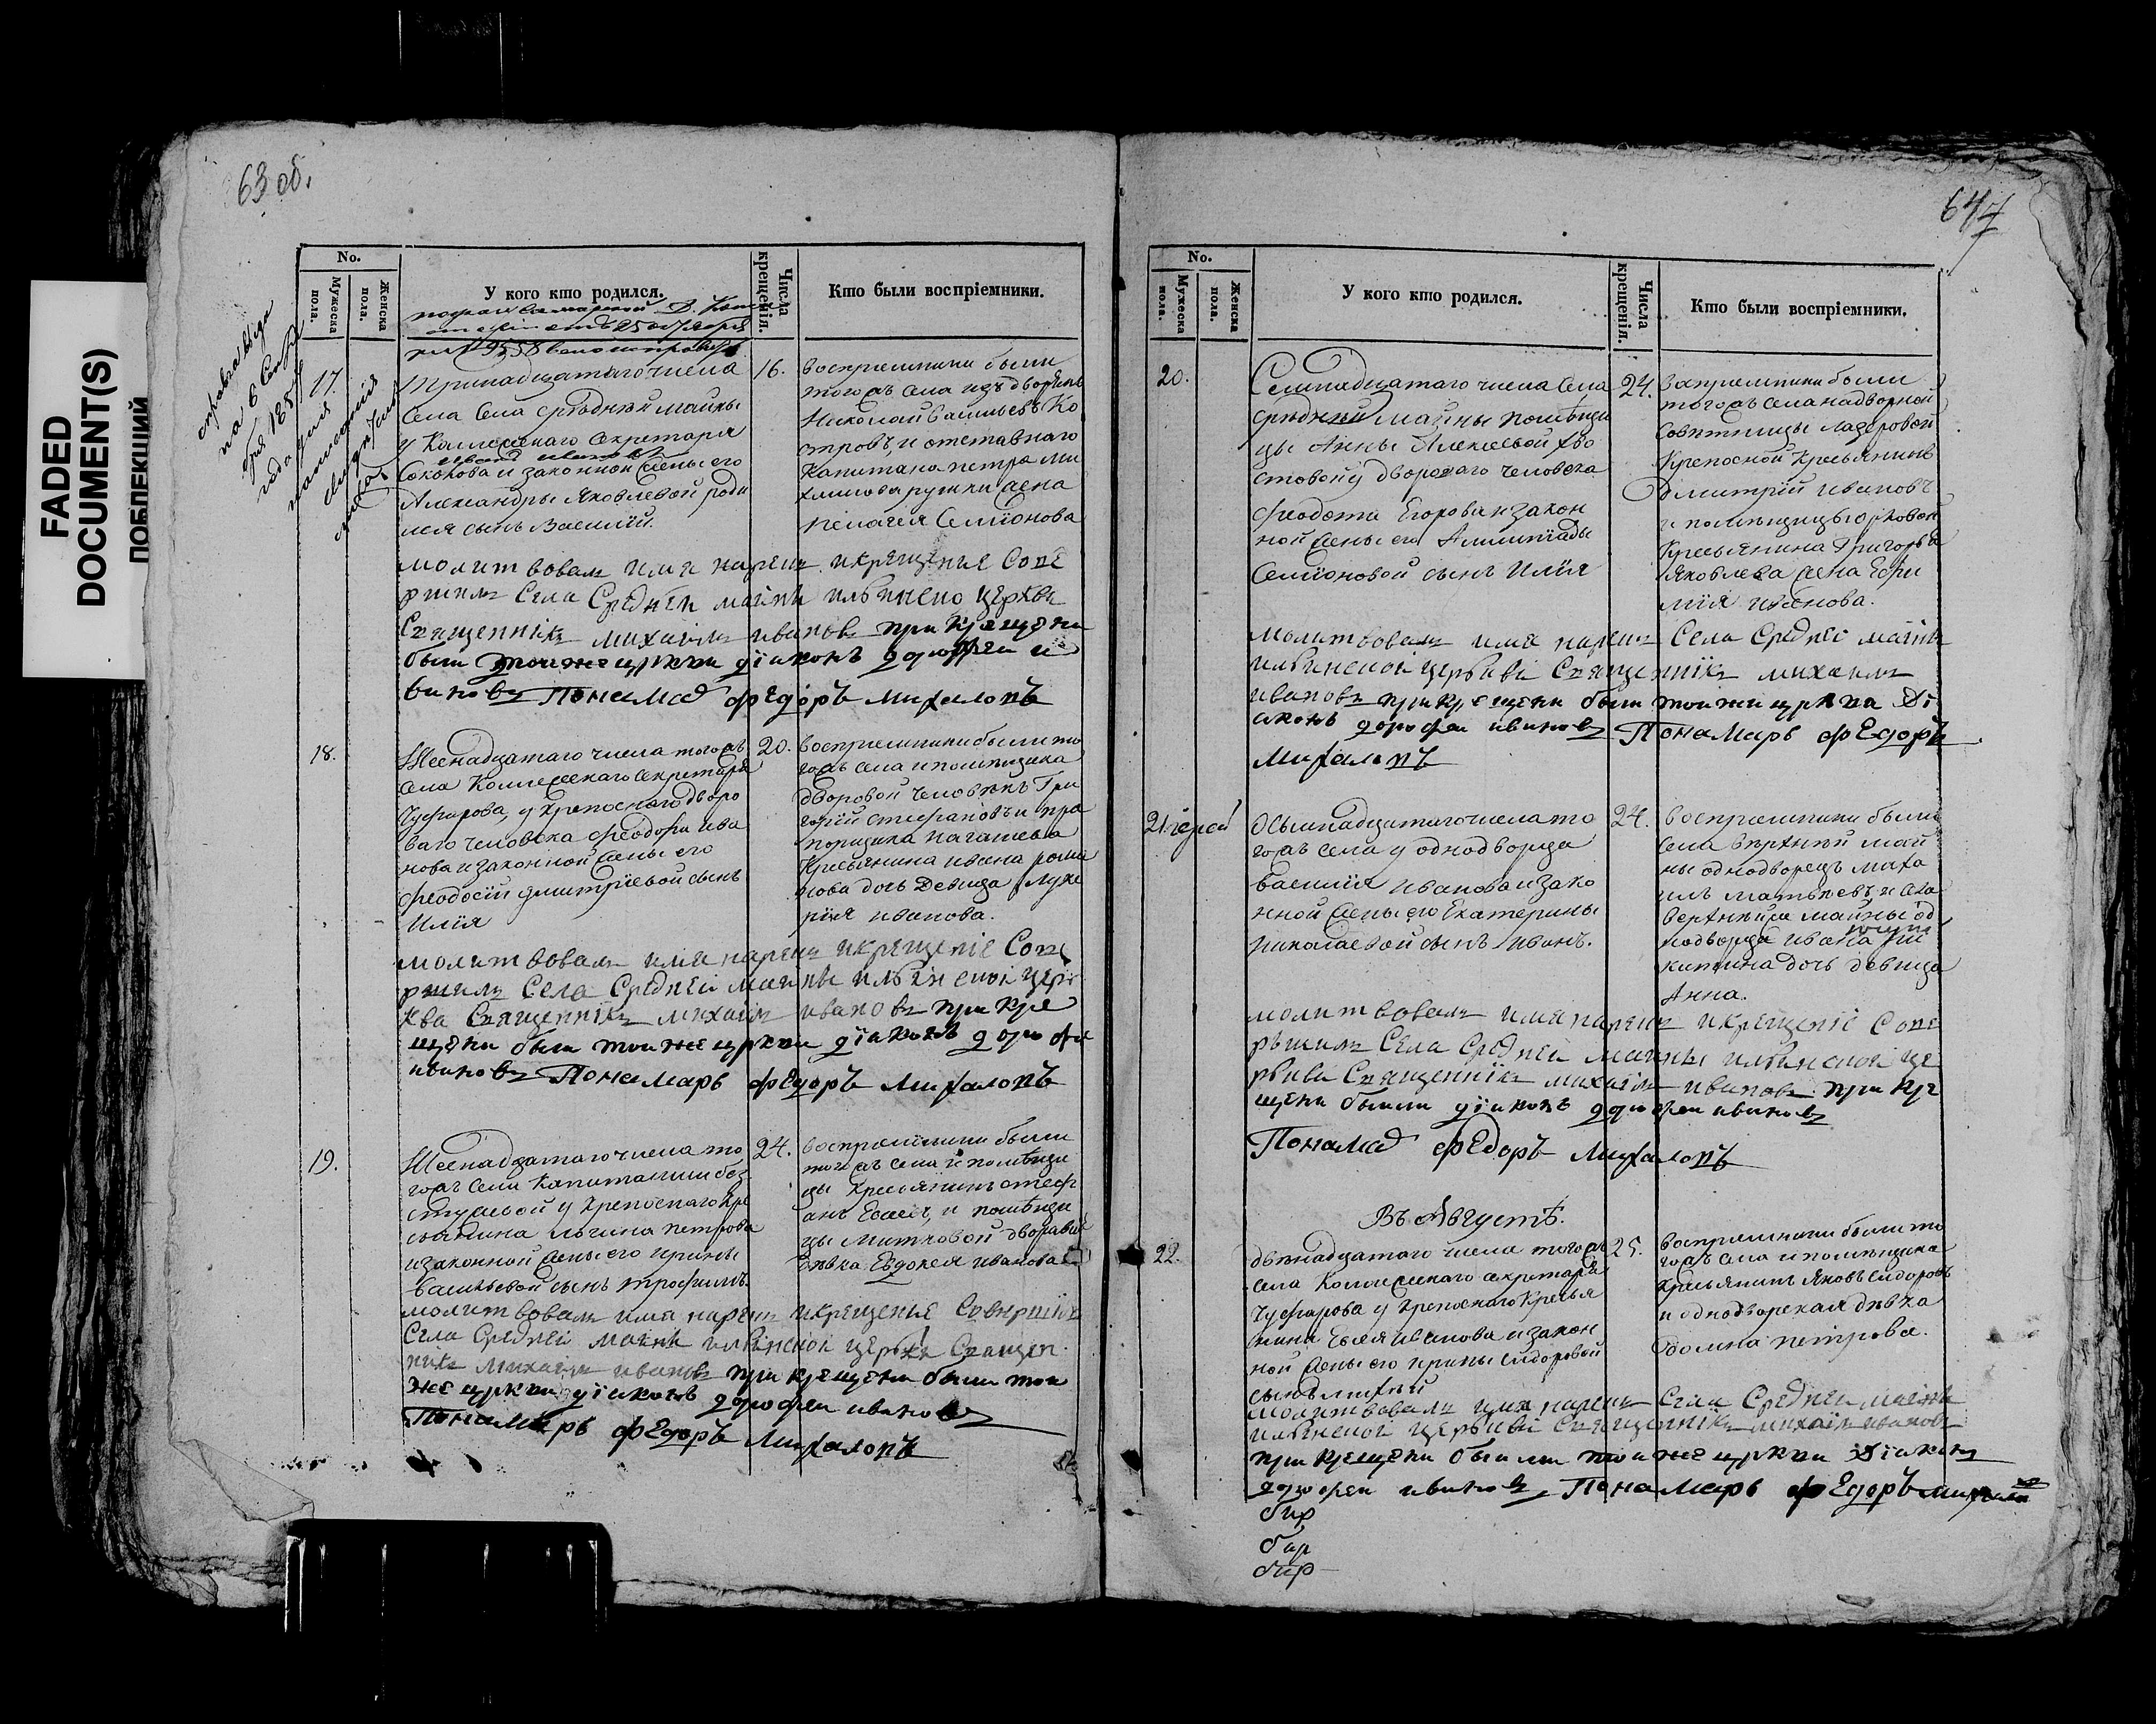 FADED
DOCUMENT(S)
ПОБЛЕКШИЙ
63 об.
No.
Мужеска пола.
Женска пола.
У кого кто родился.
Числа крещенія.
Кто были воспріемники.
справка выда
на 6 Сентя
бря 1857
года дана
17.
Тринадцатаго числа
Села Села средней майны
у Коллежскаго Секретаря
Соколова и законной жены его
Александры Яковлевой роди
лся сынъ Василій.
16.
воспріемники были
тогожъ села изъ дворянъ
Николай Васильевъ Ко
стровъ, и отставнаго
Капитана петра Ми
жена
пелагея Семіонова
молитвовалъ имя нарекъ и крещенье Сове
ршилъ Села Средней майны ильинско церкви
Священникъ михаилъ ивановъ при крещени
были тоиже цркви діаконъ дорофеи и
вановъ Понамарь федоръ михаловъ
18.
Шеснадцатаго числа тогожъ
села Коллежскаго Секретаря
Чуфарова, у крепоснаго дворо
ваго человека феодора ива
нова и законной жены его
феодосіи дмитріевой сынъ
Илія
20.
воспріемники были то
гожъ села и помещика
дворовой человекъ Гри
горій стефановъ и пра
порщика
Крестьянина ивана рома
нова дочь Девица Луке
рія иванова.
молитвовалъ имя нарекъ и крещеніе Сове
ршилъ Села Средней майны ильинской цер
ква Священникъ михаилъ ивановъ при кре
щени были тоиже цркви діаконъ дорофеи
ивановъ Понамарь федоръ михаловъ
19.
Шеснадцатаго числа то
гожъ села Капитанши без
стужевой у крепоснаго кре
стьянина петрова
и законной жены его ирины
Васильевой сынъ трофимъ.
24.
воспріемники были
тогожъ села и помещи
цы крестьянинъ стеф
анъ и помещи
цы дворовая
девка Евдокея иванова
молитвовалъ имя нарекъ и крещенье Совершилъ
Села Средней майны ильинской церкви Священ
никъ михаилъ ивановъ при крещени были тои
же цркви діаконъ дорофеи ивановъ
Понамарь федоръ михаловъ
64
No.
Мужеска пола.
Женска пола.
У кого кто родился.
Числа крещенія.
Кто были воспріемники.
20.
Семнадцатаго числа Села
средней майны помещи
цы Анны Алексеевой хво
стовой у двороваго человека
феодота Егорова и закон
ной жены его
Семіоновой сынъ Илія
24.
воспріемники были
тогожъ села надворной
Советницы
крепосной крестьянинъ
Димитрій ивановъ
и помещицы
крестьянина Григорья
Яковлева жена Ефи
мія иванова.
молитвовалъ имя нарекъ Села Средней майны
ильинской церькви Священникъ михаилъ
ивановъ при крещени были тоиже цркви ді
аконъ дорофеи ивановъ Понамарь федоръ
михаловъ
21.
Осьмнадцатаго числа то
гожъ села у однодворца
Василія Иванова и зако
нной жены его Екатерины
николаевой сынъ иванъ.
24.
воспріемники были
села верхней май
ны однодворецъ миха
илъ матвеевъ и села
верхней майны од
нодворца ивана ни
китина дочь девица
Анна.
молитвовалъ имя нарекъ и крещеніе Сове
ршилъ Села Средней майны ильинской це
рькви Священникъ михаилъ ивановъ при кре
щени былили діаконъ дорофеи ивановъ
Понамарь федоръ михаловъ
Въ Августѣ.
22.
двенадцатаго числа тогожъ
села Коллежскаго секретаря
Чуфарова у крепоснаго крестья
нина иванова и закон
ной жены его ирины сидоровой
сынъ михей
25.
воспріемники были то
гожъ села и помещика
крестьянинъ Яковъ сидоровъ
и однодворская девка
домна петрова.
молитвовалъ имя нарекъ Села Средней майны
ильинской церькви Священникъ михаилъ ивановъ
при крещени былили тоиже цркви діаконъ
дорофеи ивановъ Понамарь федоръ михаловъ